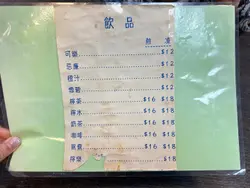 飲品
熱 凍
可樂 $12
忌廉 $12
橙汁 $12
雪碧 $12
檸茶 $16 $18
檸水 $16 $18
奶茶 $16 $18
咖啡 $16 $18
$16 $18
檸樂 $18